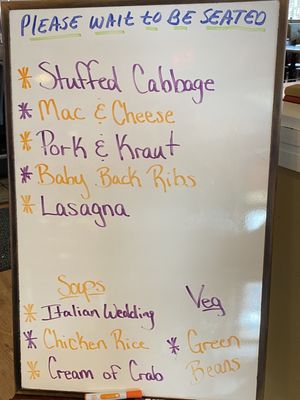 PLEASE WAIT to BE SEATED
* Stuffed Cabbage
* Mac & Cheese
* Pork & Kraut
* Baby Back Ribs
* Lasagna
Soups
* Italian Wedding
* Chicken Rice
* Cream of Crab
Veg
* Green
Beans